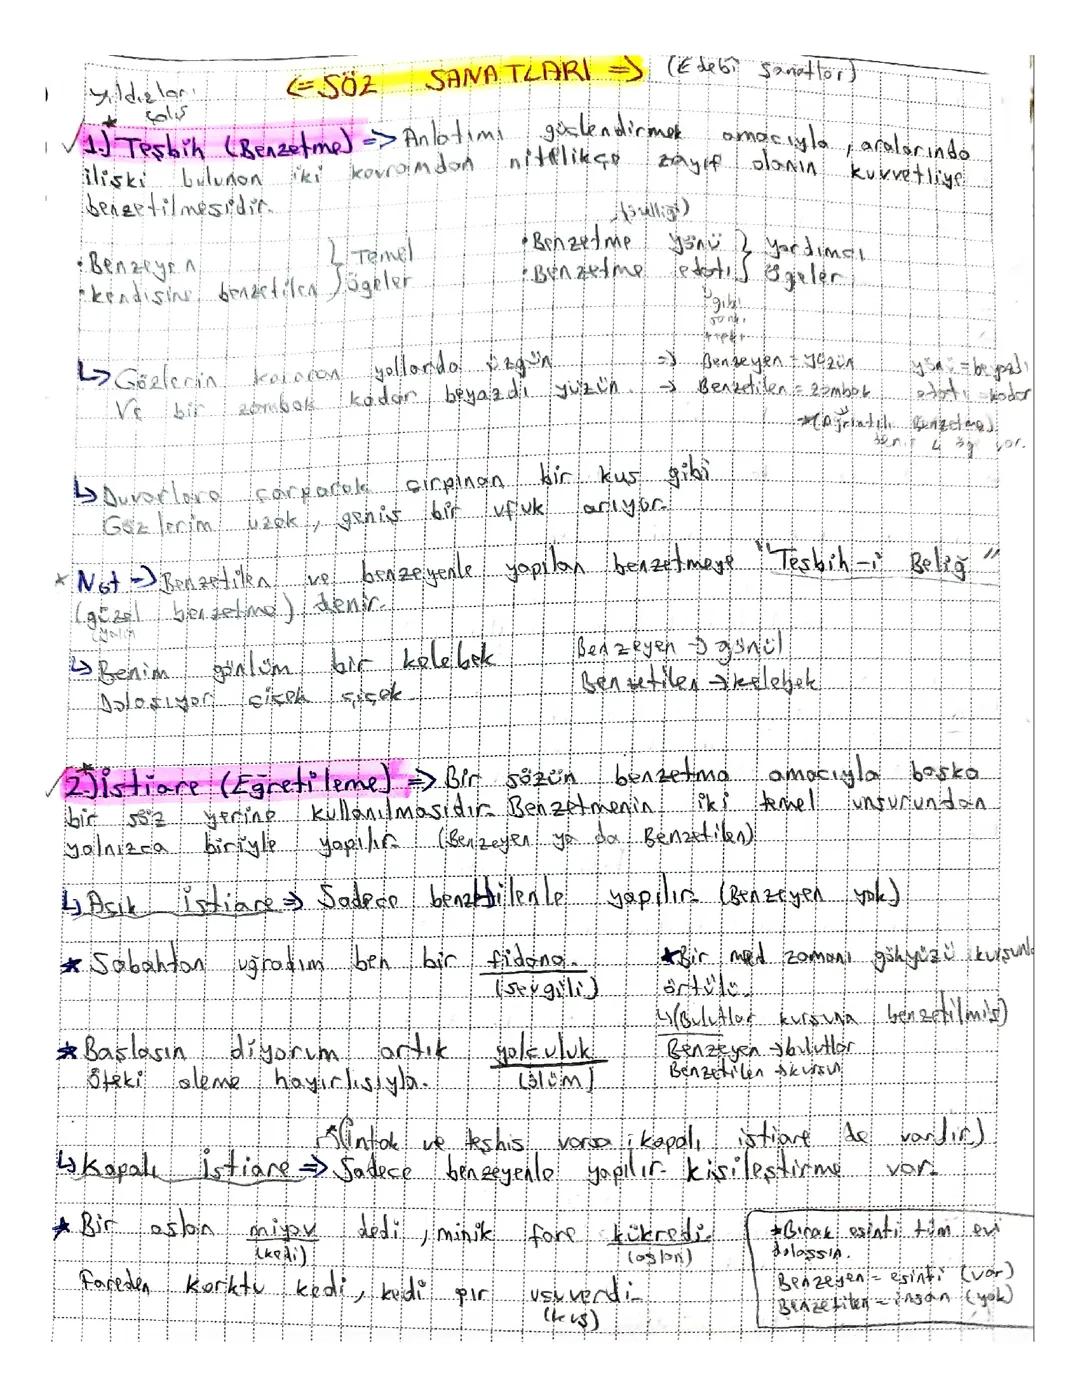 <= SÖZ SANATLARI => (Edebi Sanatlar)
yıldızları
çalış
1.) Teşbih (Benzetme) => Anlatımı güçlendirmek amacıyla, aralarında
ilişki bulunan iki kavramdan nitelikçe zayıf olanın kuvvetliye
benzetilmesidir.
• Benzeyen
• kendisine benzetilen } Temel ögeler
• Benzetme yönü
• Benzetme edatı } yardımcı ögeler
gibi
↳ Gözlerin kararan yollarda üzgün
Ve bir zambak kadar beyazdı yüzün.
=> Benzeyen = yüzün
→ Benzetilen = zambak
edatı = kadar
↳ Duvarlara çarparak çırpınan bir kuş gibi
Gözlerim uzak, geniş bir ufuk arıyor.
* Not → Benzetilen ve benzeyenle yapılan benzetmeye "Teşbih-i Beliğ"
(güzel benzetme) denir.
↳ Benim gönlüm bir kelebek
Dolaşıyor çiçek çiçek
Benzeyen → gönül
Benzetilen → kelebek
2) İstiare (Eğretileme) => Bir sözün benzetme amacıyla başka
bir söz yerine kullanılmasıdır. Benzetmenin iki temel unsurundan
yalnızca biriyle yapılır. (Benzeyen ya da Benzetilen)
↳ Açık İstiare => Sadece benzetilenle yapılır (Benzeyen yok)
* Sabahtan uğradım ben bir fidana.
(sevgili)
* Başlasın diyorum artık yolculuk
Öteki aleme hayırlısıyla.
(ölüm)
* Bir med zamanı gökyüzü kurşunla
örtülü.
↳ (Bulutlar kurşuna benzetilmiş)
Benzeyen → bulutlar
Benzetilen → kurşun
(İntak ve teşhis varsa kapalı istiare de vardır)
↳ Kapalı İstiare => Sadece benzeyenle yapılır. kişileştirme var.
* Bir aslan miyav dedi, minik fare kükredi.
(kedi) (aslan)
Fareden korktu kedi, kedi pır uçuverdi.
(kuş)
* Bırak esinti tüm evi
dolaşsın.
Benzeyen = esinti (var)
Benzetilen = insan (yok)